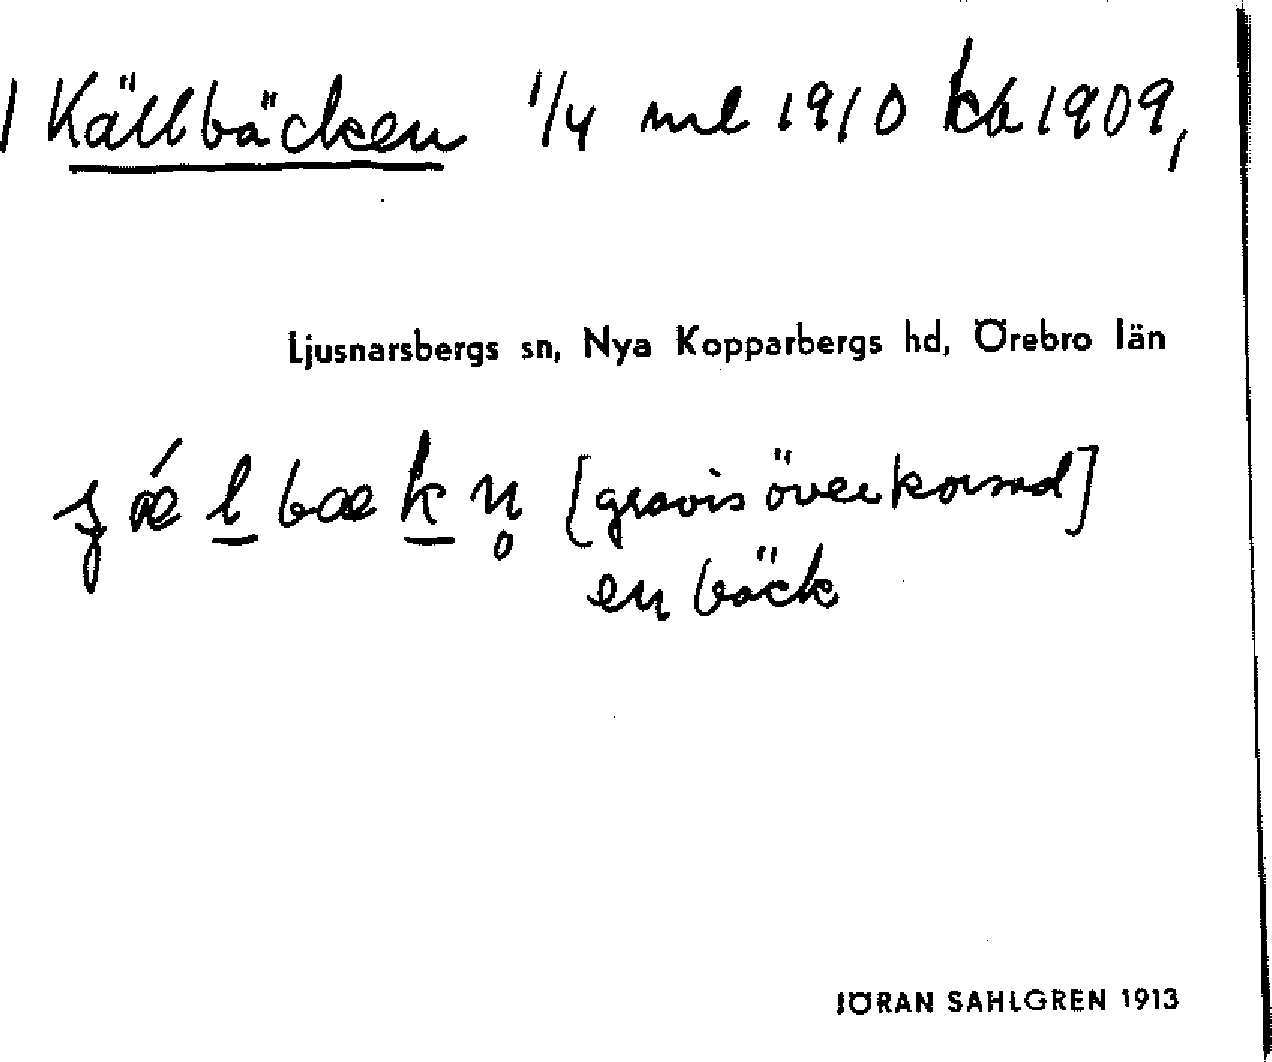 Källbäcken 1/4 ml 1910 kb 1909,
Ljusnarsbergs sn, Nya Kopparbergs hd, Örebro län
[gravis överkorsad]
en bäck
JÖRAN SAHLGREN 1913